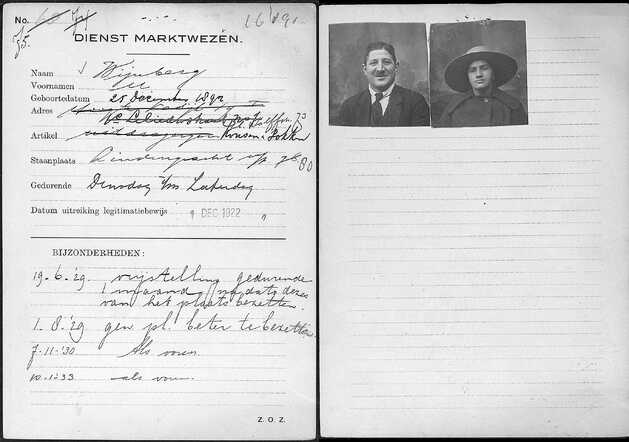 No.
1619
DIENST MARKTWEZEN.
Naam Wijnberg
Voornamen
Geboortedatum 25 December 1892
Adres
Artikel Kousen & Sokken
Staanplaats Lindengracht 80
Gedurende Dinsdag t/m Zaterdag
Datum uitreiking legitimatiebewijs 1 DEC 1922
BIJZONDERHEDEN:
19-6-'29. vrijstelling gedurende
1 maand na dato dezes
van het plaats bezetten.
1-8-'29 gen. pl. beter te bezetten.
7-11-'30 Als voren.
10-1-'33 als voren.
Z. O. Z.